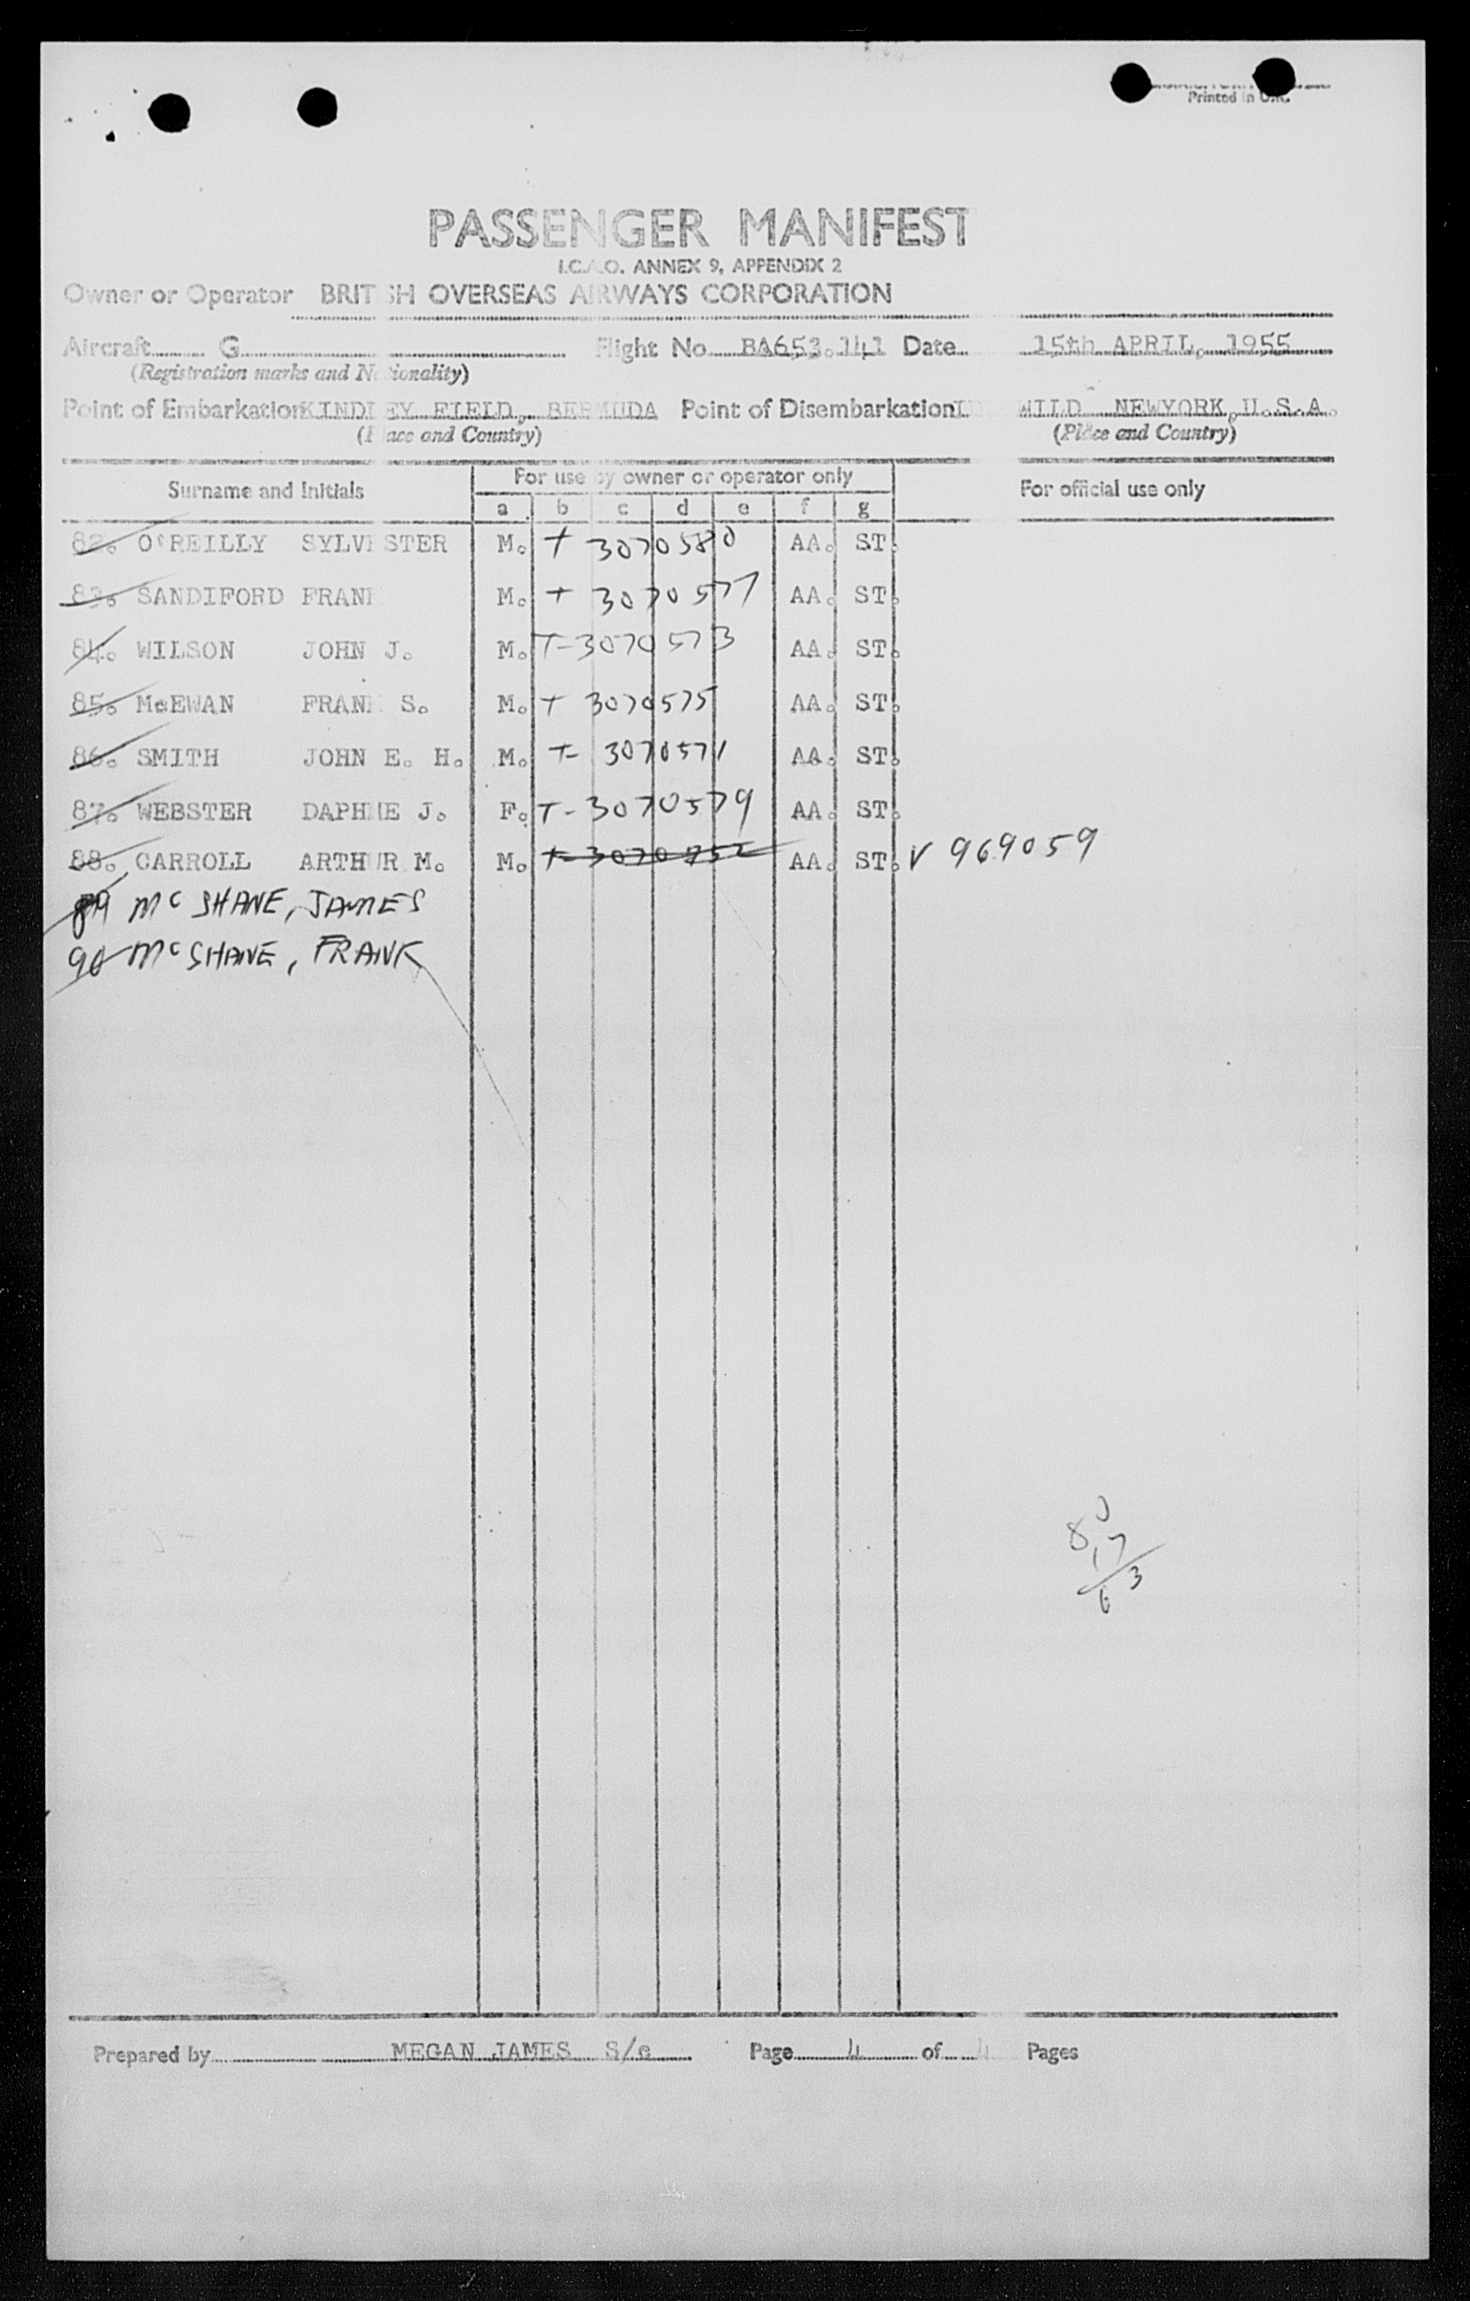 Printed in U.K.
PASSENGER MANIFEST
I.C.A.O. ANNEX 9, APPENDIX 2
Owner or Operator BRITISH OVERSEAS AIRWAYS CORPORATION
Aircraft G Flight No BA653.141 Date 15th APRIL, 1955
(Registration marks and Nationality)
Point of Embarkation KINDLEY FIELD, BERMUDA Point of Disembarkation WILD NEWYORK, U.S.A.
(Place and Country) (Place and Country)
For use by owner or operator only
Surname and Initials For official use only
a b c d e f g
82. O'REILLY SYLVESTER M. T 3070580 AA. ST.
83. SANDIFORD FRANK M. T 3070577 AA. ST.
84. WILSON JOHN J. M. T-3070573 AA. ST.
85. McEWAN FRANK S. M. T 3070575 AA. ST.
86. SMITH JOHN E. H. M. T- 3070571 AA. ST.
87. WEBSTER DAPHNE J. F. T-3070579 AA. ST.
88. CARROLL ARTHUR M. M. T-3070752 AA. ST. V 969059
89 McSHANE, JAMES
90 McSHANE, FRANK
80
17
63
Prepared by MEGAN JAMES S/e Page 4 of 4 Pages